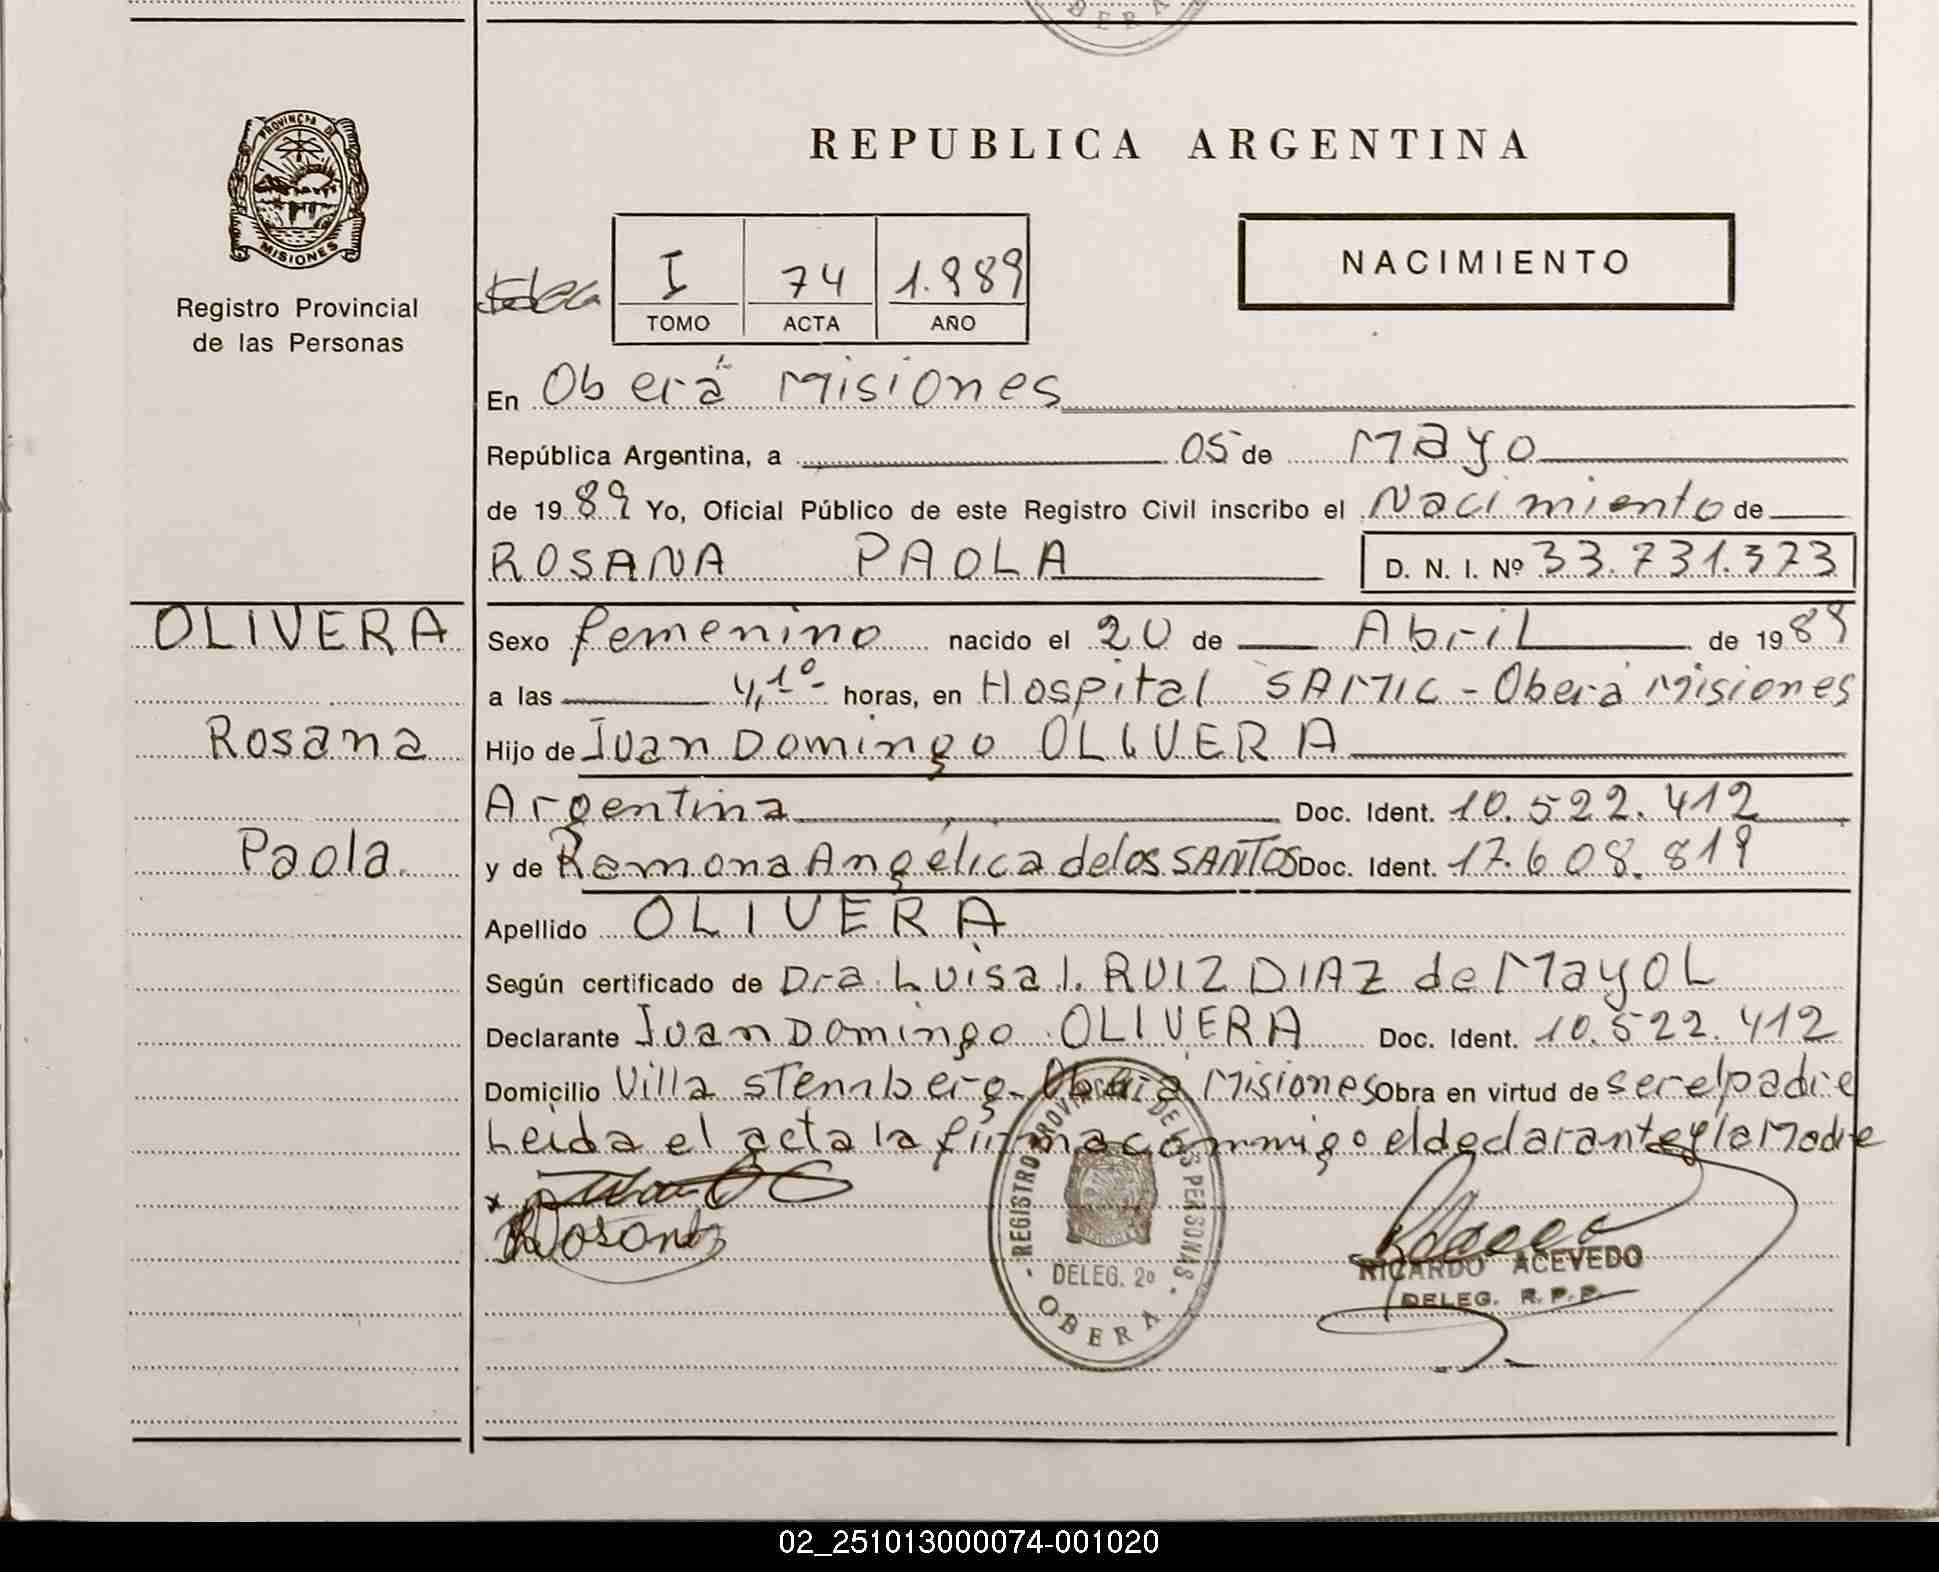 OBERA
PROVINCIA DE
MISIONES
Registro Provincial
de las Personas
REPUBLICA ARGENTINA
NACIMIENTO
I 74 1.989
TOMO ACTA AÑO
En Oberá Misiones
República Argentina, a 05 de Mayo
de 1989 Yo, Oficial Público de este Registro Civil inscribo el Nacimiento de
ROSANA PAOLA D. N. I. Nº 33.731.373
OLIVERA
Rosana
Paola.
Sexo femenino nacido el 20 de Abril de 1989
a las 4,10- horas, en Hospital SAMIC - Oberá Misiones
Hijo de Juan Domingo OLIVERA
Argentina Doc. Ident. 10.522.412
y de Ramona Angélica de los SANTOS Doc. Ident. 17.608.819
Apellido OLIVERA
Según certificado de Dra. Luisa I. RUIZ DIAZ de MayOL
Declarante Juan Domingo OLIVERA Doc. Ident. 10.522.412
Domicilio Villa sTennberg- Oberá Misiones Obra en virtud de ser el padre
Leida el acta la firma commigo el declarante y la Madre
REGISTRO PROVINCIAL DE LAS PERSONAS
DELEG. 2º
OBERA
RICARDO ACEVEDO
DELEG. R. P. P.
02_251013000074-001020